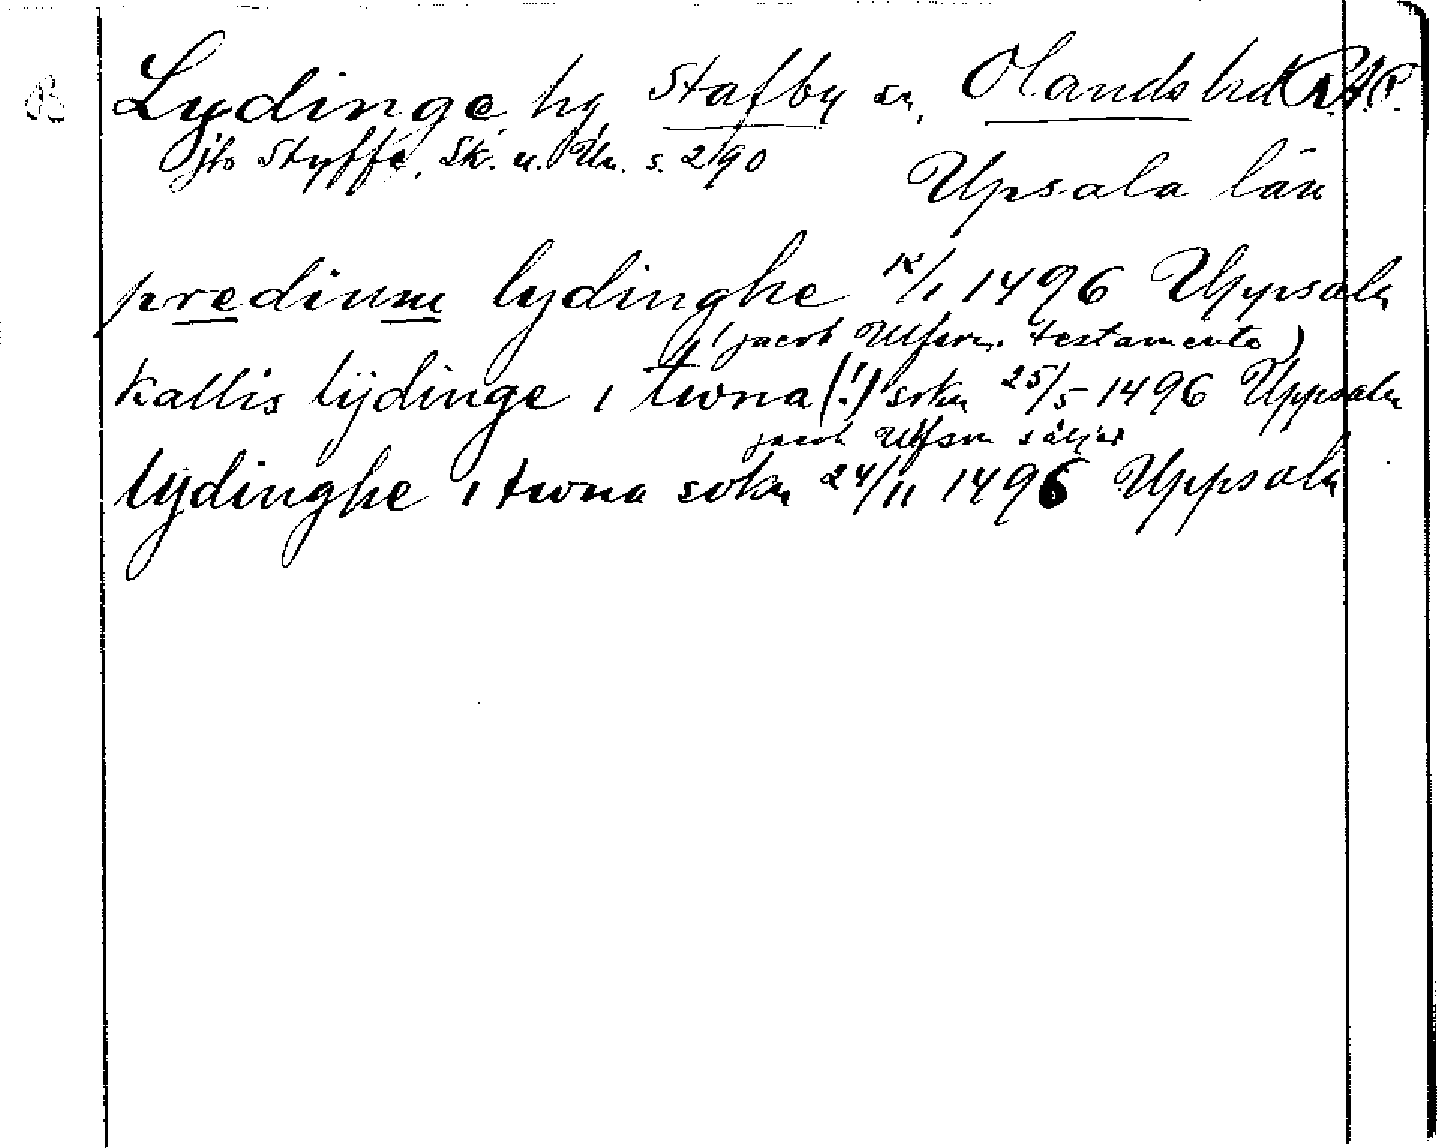 Lydinge hg Stafby sn, Olands hd RAP.
jfr Styffe, Sk. u. Un. s. 290
Upsala län
predium lydinghe 12/1 1496 Uppsala
(jacob Ulfsens testamente)
kallis lÿdinge i twna (!) sokn 25/5 1496 Uppsala
jacob Ulfson säljer
lÿdinghe i twna sokn 24/11 1496 Uppsala